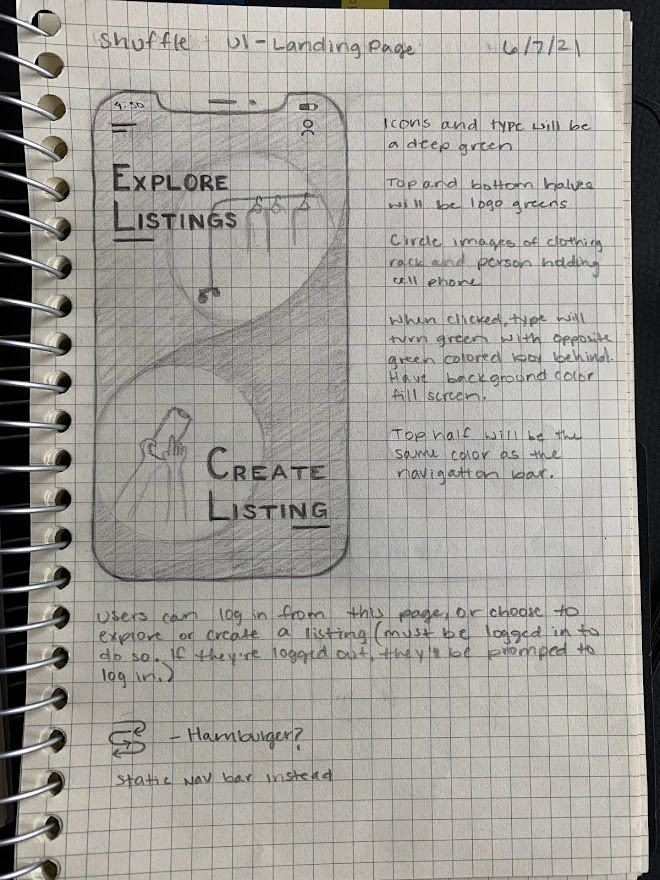 Shuffle UI-Landing Page 6/7/21
9:30
EXPLORE
LISTINGS
CREATE
LISTING
Icons and type will be
a deep green
Top and bottom halves
will be logo greens
Circle images of clothing
rack and person holding
cell phone
When clicked, type will
turn green with opposite
green colored box behind.
Have background color
fill screen.
Top half will be the
same color as the
navigation bar.
Users can log in from this page, or choose to
explore or create a listing (must be logged in to
do so. If they're logged out, they'll be promped to
log in.)
- Hamburger?
Static Nav bar instead